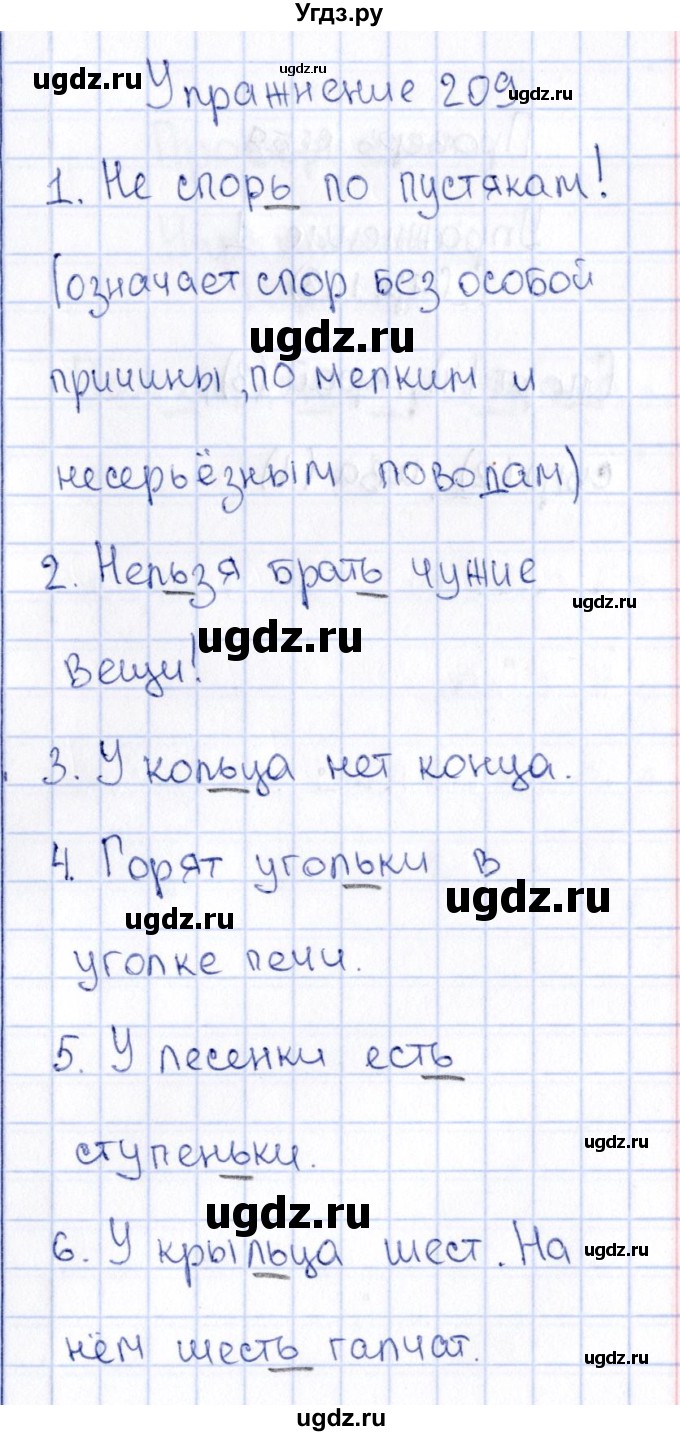 Угдз.ру
ugdz.ru
ugdz.ru
Упражнение 209
ugdz.ru
1. Не спорь по пустякам!
(означает спор без особой
ugdz.ru
причины, по мелким и
несерьёзным поводам)
2. Нельзя брать чужие
ugdz.ru
ugdz.ru
вещи!
3. У кольца нет конца.
4. Горят угольки в
ugdz.ru
ugdz.ru
уголке печи.
5. У лесенки есть
ugdz.ru
ступеньки.
ugdz.ru
6. У крыльца шест. На
ugdz.ru
нём шесть галчат.
ugdz.ru
ugdz.ru